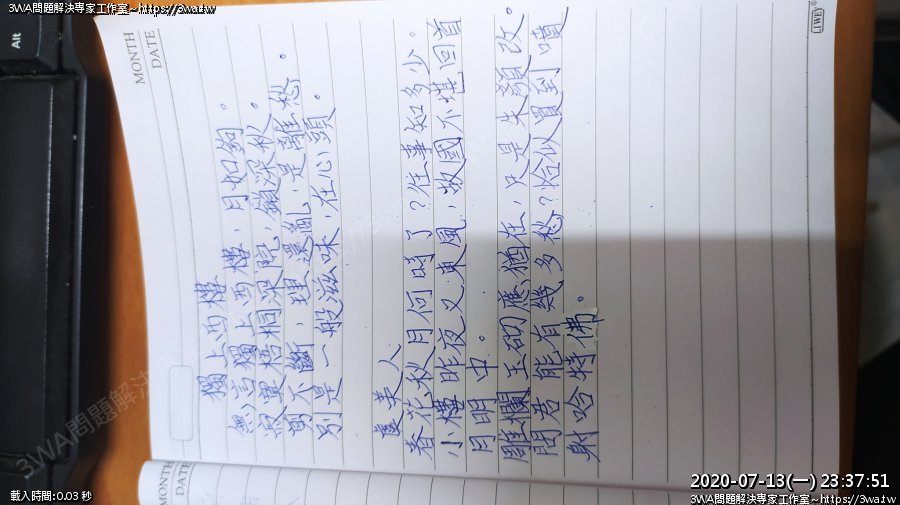 3WA問題解決專家工作室~https://3wa.tw
Alt
MONTH
DATE
獨上西樓
無言獨上西樓，月如鉤。
寂寞梧桐深院，鎖深秋。
剪不斷，理還亂，是離愁。
別是一般滋味，在心頭。
虞美人
春花秋月何時了？往事知多少。
小樓昨夜又東風，故國不堪回首
月明中。
雕欄玉砌應猶在，只是朱顏改。
問君能有幾多愁？恰似買到噴
射哈特佛。
MONTH
DATE
載入時間:0.03 秒
2020-07-13(一) 23:37:51
3WA問題解決專家工作室~https://3wa.tw